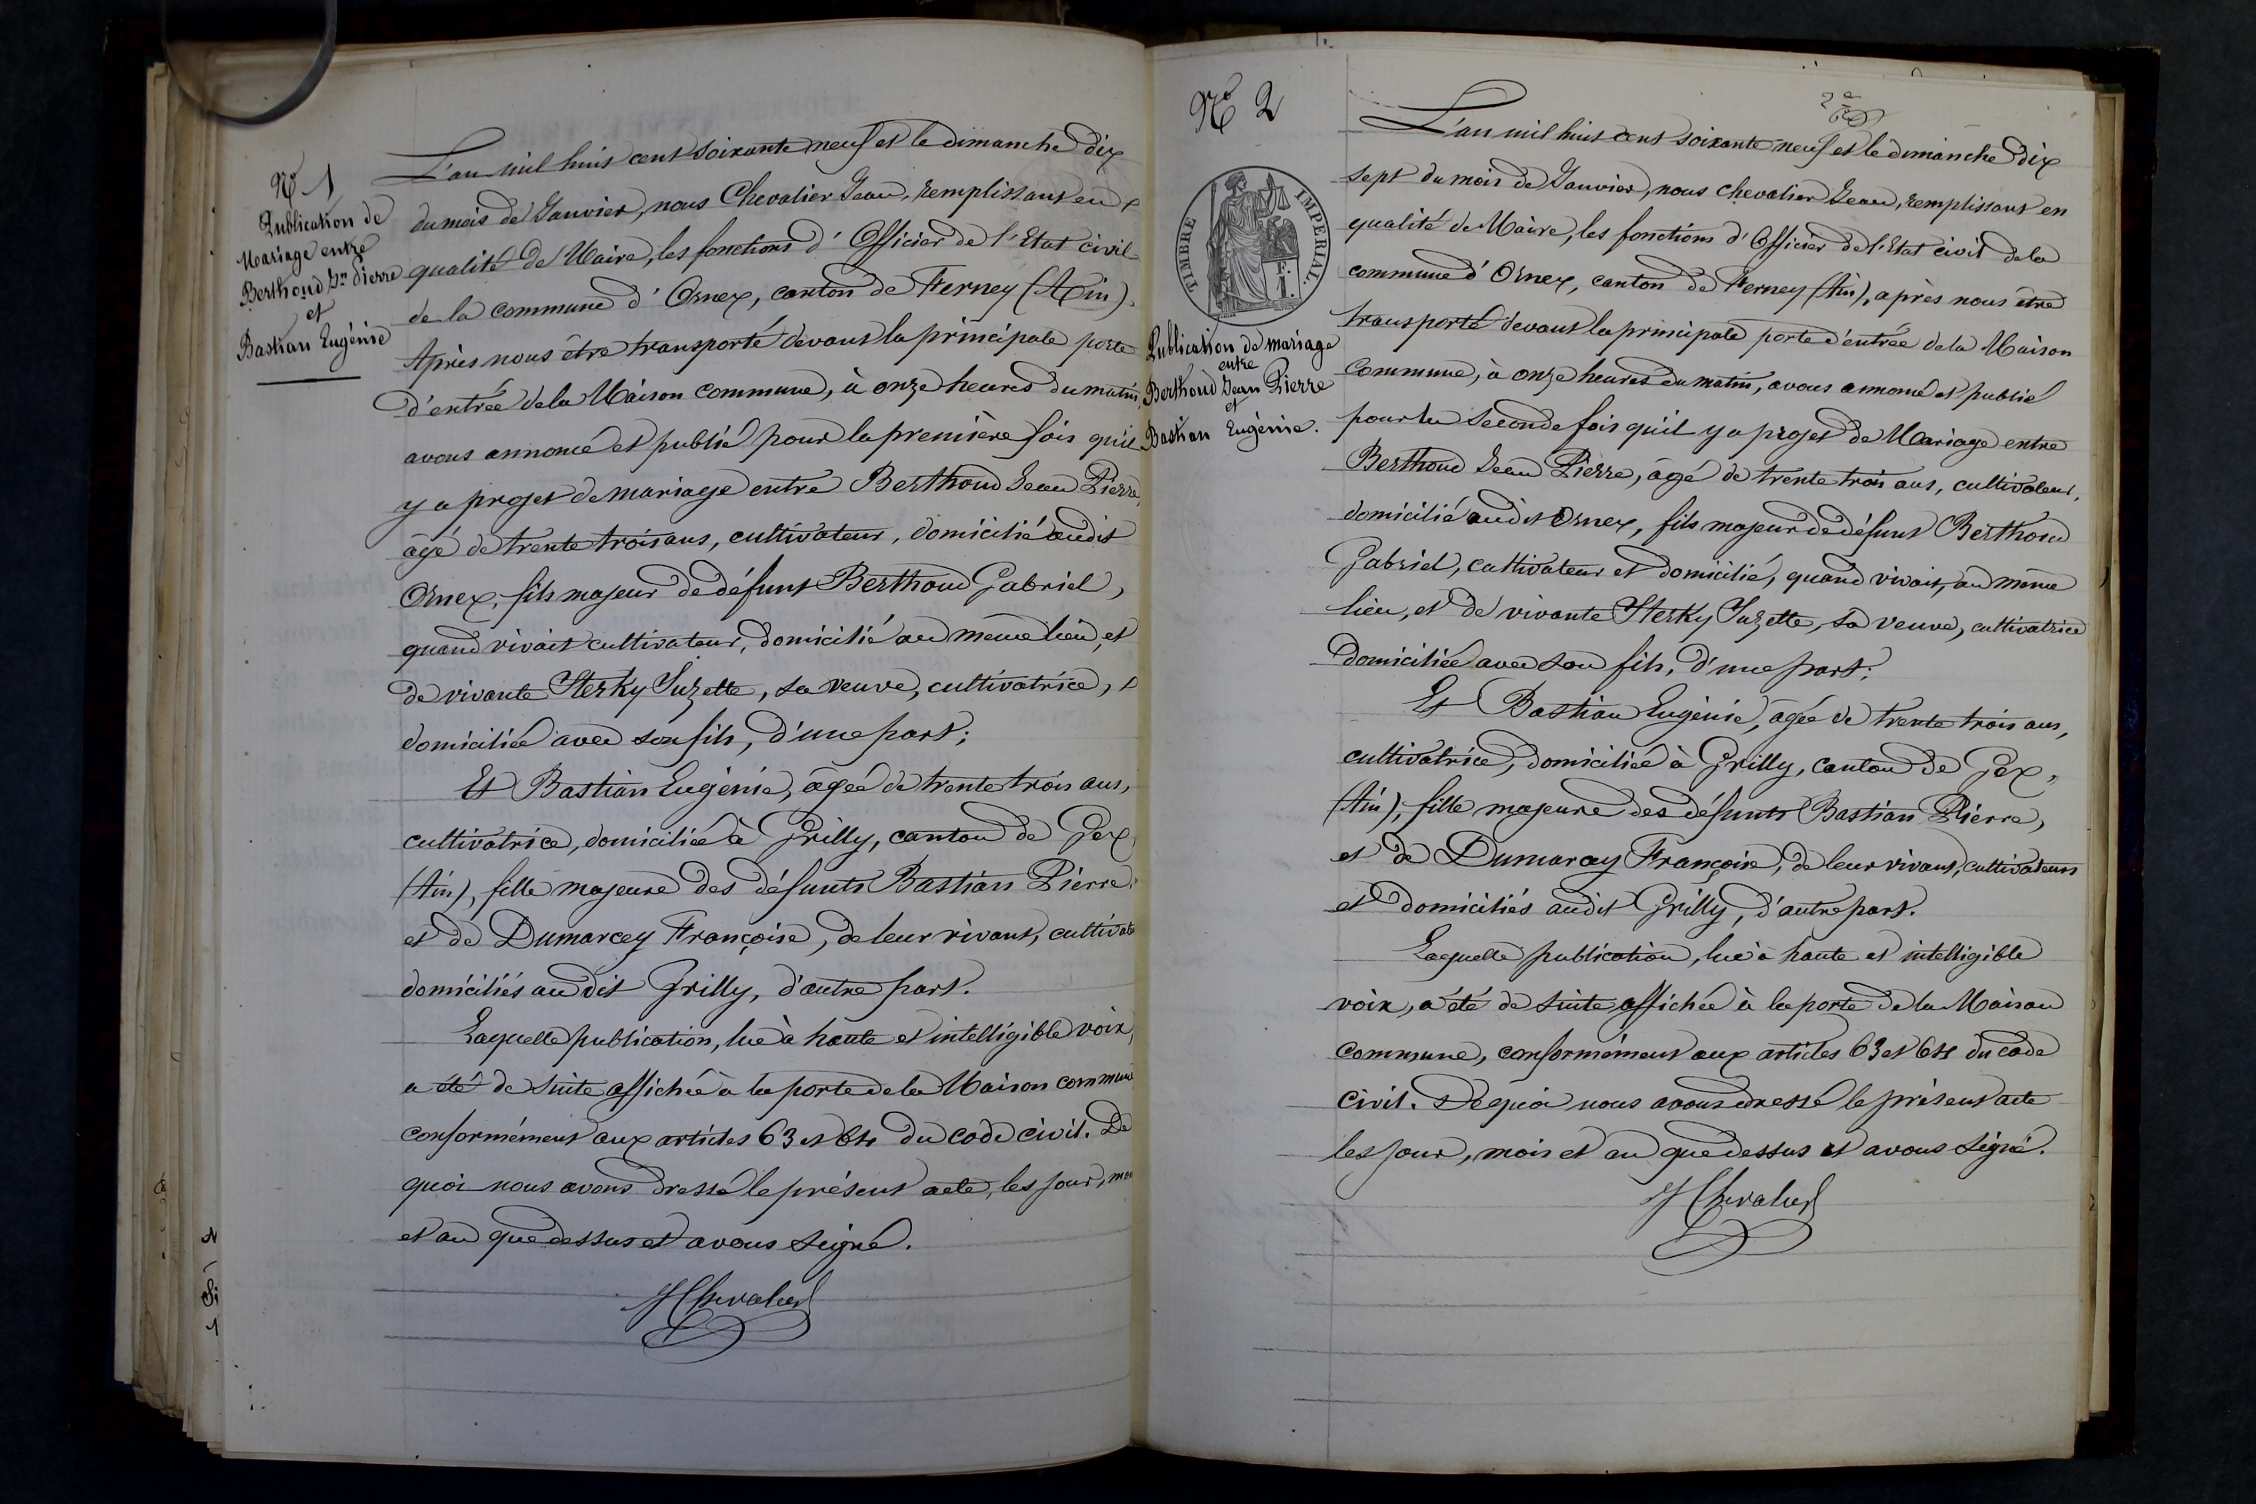 Nº 1
Publication de
Mariage entre
Berthoud Jn Pierre
et
Bastian Eugénie
L'an mil huit cent soixante neuf et le dimanche dix
du mois de Janvier, nous Chevalier Jean, remplissant en
qualité de Maire, les fonctions d'Officier de l'Etat civil
de la commune d'Ornex, canton de Ferney (Ain).
Après nous être transporté devant la principale porte
d'entrée de la Maison commune, à onze heures du matin,
avons annoncé et publié pour la première fois qu'il
y a projet de mariage entre Berthoud Jean Pierre,
âgé de trente trois ans, cultivateur, domicilié audit
Ornex, fils majeur de défunt Berthoud Gabriel,
quand vivait cultivateur, domicilié au même lieu, et
de vivante Sterky Suzette, sa veuve, cultivatrice,
domiciliée avec son fils, d'une part;
Et Bastian Eugénie, âgée de trente trois ans,
cultivatrice, domiciliée à Grilly, canton de Gex
(Ain), fille majeure des défunts Bastian Pierre
et de Dumarcey Françoise, de leur vivant, cultivate
domiciliés au dit Grilly, d'autre part.
Laquelle publication, lue à haute et intelligible voix,
a été de suite affichée à la porte de la Maison commune
conformément aux articles 63 et 64 du code civil. De
quoi nous avons dressé le présent acte, les jour, moi
et an que dessus et avons signé.
J Chevalier
Nº 2
TIMBRE IMPERIAL.
F.
1.
Publication de mariage
entre
Berthoud Jean Pierre
et
Bastian Eugénie.
2e
L'an mil huit cent soixante neuf et le dimanche dix
sept du mois de Janvier, nous Chevalier Jean, remplissant en
qualité de Maire, les fonctions d'Officier de l'Etat civil de la
commune d'Ornex, canton de Ferney (Ain), après nous être
transporté devant la principale porte d'entrée de la Maison
Commune, à onze heures du matin, avons annoncé et publié
pour la seconde fois qu'il y a projet de Mariage entre
Berthoud Jean Pierre, âgé de trente trois ans, cultivateur,
domicilié audit Ornex, fils majeur de défunt Berthoud
Gabriel, cultivateur et domicilié, quand vivait, au même
lieu, et de vivante Sterky Suzette, sa veuve, cultivatrice
domiciliée avec son fils, d'une part;
Et Bastian Eugénie, âgée de trente trois ans,
cultivatrice, domiciliée à Grilly, canton de Gex,
(Ain), fille majeure des défunts Bastian Pierre,
et de Dumarcey Françoise, de leur vivant, cultivateurs
et domiciliés audit Grilly, d'autre part.
Laquelle publication, lue à haute et intelligible
voix, a été de suite affichée à la porte de la Maison
commune, conformément aux articles 63 et 64 du code
civil. De quoi nous avons dressé le présent acte
les jour, mois et an que dessus et avons signé.
J Chevalier